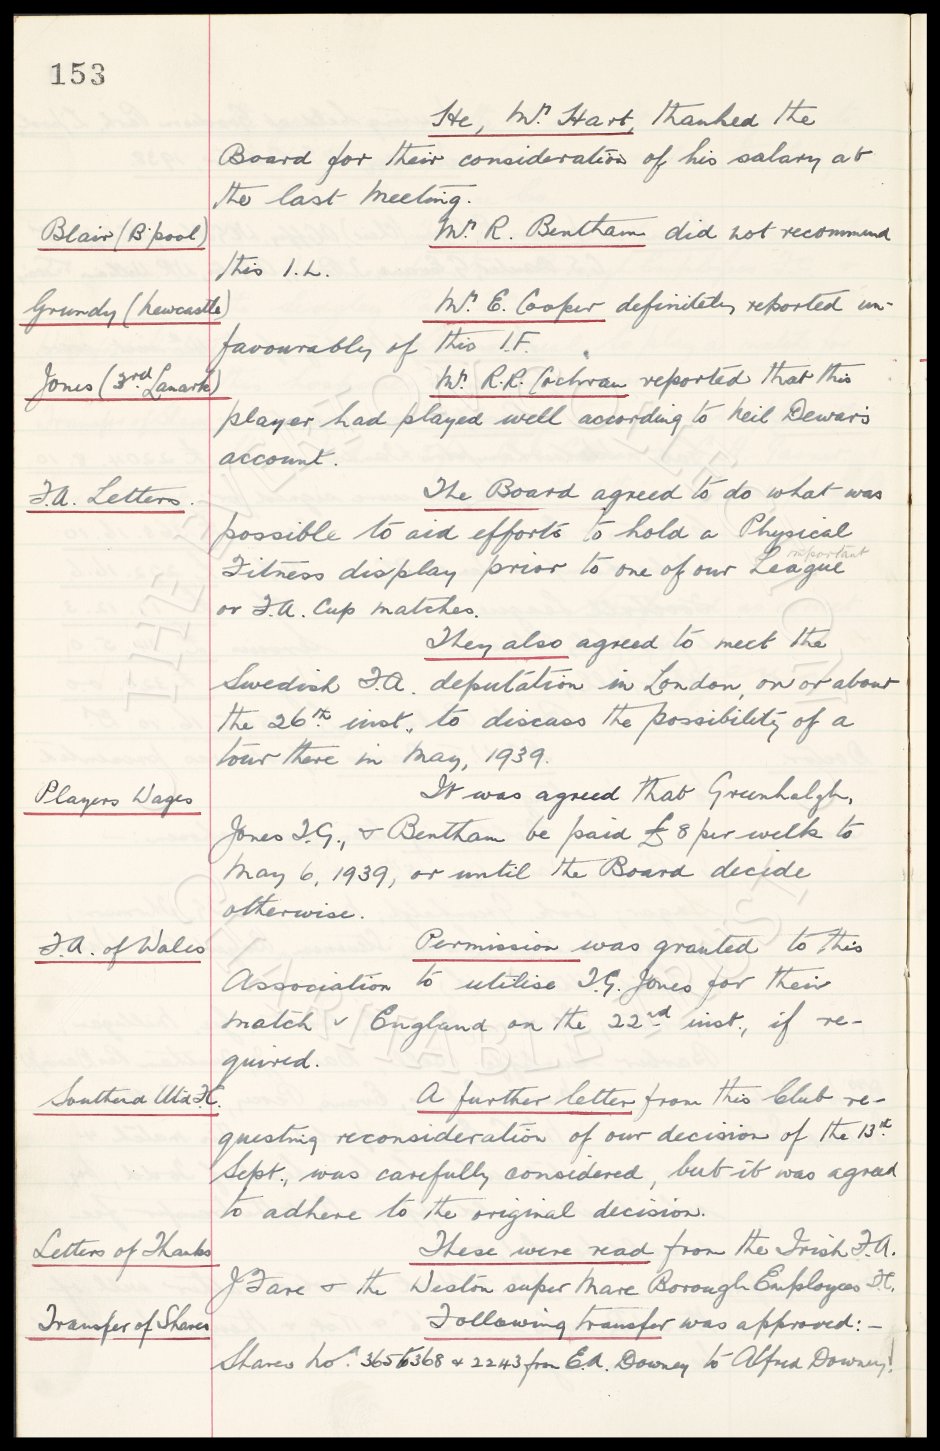 153
He, Mr. Hart, thanked the
Board for their consideration of his salary at
the last Meeting.
Blair (B'pool) Mr. R. Bentham did not recommend
this I.L.
Grundy (Newcastle) Mr. E. Cooper definitely reported un-
favourably of this I.F.
Jones (3rd Lanark) Mr. R.R. Cochran reported that this
player had played well according to Neil Dewar's
account.
F.A. Letters. The Board agreed to do what was
possible to aid efforts to hold a Physical
important
Fitness display prior to one of our League
or F.A. Cup matches.
They also agreed to meet the
Swedish F.A. deputation in London, on or about
the 26th inst., to discuss the possibility of a
tour there in May, 1939.
Players Wages It was agreed that Greenhalgh,
Jones T.G., & Bentham be paid £8 per week to
May 6, 1939, or until the Board decide
otherwise.
F.A. of Wales Permission was granted to this
Association to utilise T.G. Jones for their
match v England on the 22nd inst., if re-
quired.
Southend Utd F.C. A further letter from this Club re-
questing reconsideration of our decision of the 13th
Sept., was carefully considered, but it was agreed
to adhere to the original decision.
Letters of Thanks These were read from the Irish F.A.
J Fare & the Weston super Mare Borough Employees F.C.
Transfer of Shares Following transfer was approved:-
Shares Nos. 365 to 368 & 2243 from E.A. Downey to Alfred Downey!